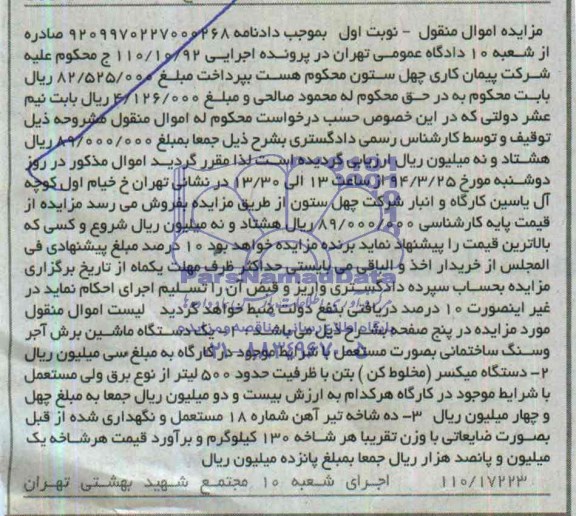 مزایده اموال منقول - نوبت اول بموجب دادنامه ۹۲۰۹۹۷۰۲۲۷۰۰۰۲۶۸ صادره
از شعبه ۱۰ دادگاه عمومی تهران در پرونده اجرایی ۱۱۰/۱۰/۹۲ ج محکوم علیه
شرکت پیمان کاری چهل ستون محکوم هست بپرداخت مبلغ ۸۲/۵۲۵/۰۰۰ ریال
بابت محکوم به در حق محکوم له محمود صالحی و مبلغ ۴/۱۲۶/۰۰۰ ریال بابت نیم
عشر دولتی که در این خصوص حسب درخواست محکوم له اموال منقول مشروحه ذیل
توقیف و توسط کارشناس رسمی دادگستری بشرح ذیل جمعا بمبلغ ۸۹/۰۰۰/۰۰۰
هشتاد و نه میلیون ریال ارزیابی گردیده است لذا مقرر گردید اموال مذکور در روز
دوشنبه مورخ ۹۴/۳/۲۵ از ساعت ۱۳ الی ۱۳/۳۰ در نشانی تهران خ خیام اول کوچه
آل یاسین کارگاه و انبار شرکت چهل ستون از طریق مزایده بفروش می رسد مزایده از
قیمت پایه کارشناسی ۸۹/۰۰۰/۰۰۰ ریال هشتاد و نه میلیون ریال شروع و کسی که
بالاترین قیمت را پیشنهاد نماید برنده مزایده خواهد بود ۱۰ درصد مبلغ پیشنهادی فی
المجلس از خریدار اخذ و الباقی می بایستی حداکثر ظرف مهلت یکماه از تاریخ برگزاری
مزایده بحساب سپرده دادگستری واریز و قبض آن را تسلیم اجرای احکام نماید در
غیر اینصورت ۱۰ درصد دریافتی بنفع دولت ضبط خواهد گردید لیست اموال منقول
مورد مزایده در پنج صفحه بشرح ذیل می باشد ۱- یک دستگاه ماشین برش آجر
وسنگ ساختمانی بصورت مستعمل با شرایط موجود در کارگاه به مبلغ سی میلیون ریال
۲- دستگاه میکسر (مخلوط کن) بتن با ظرفیت حدود ۵۰۰ لیتر از نوع برق ولی مستعمل
با شرایط موجود در کارگاه هرکدام به ارزش بیست و دو میلیون ریال جمعا به مبلغ چهل
و چهار میلیون ریال ۳- ده شاخه تیر آهن شماره ۱۸ مستعمل و نگهداری شده از قبل
بصورت ضایعاتی با وزن تقریبا هر شاخه ۱۳۰ کیلوگرم و برآورد قیمت هرشاخه یک
میلیون و پانصد هزار ریال جمعا بمبلغ پانزده میلیون ریال
۱۱۰/۱۷۲۲۳ اجرای شعبه ۱۰ مجتمع شهید بهشتی تهران
ParsNamadData
۰۲۱-۸۸۳۴۹۶۷۰-۵